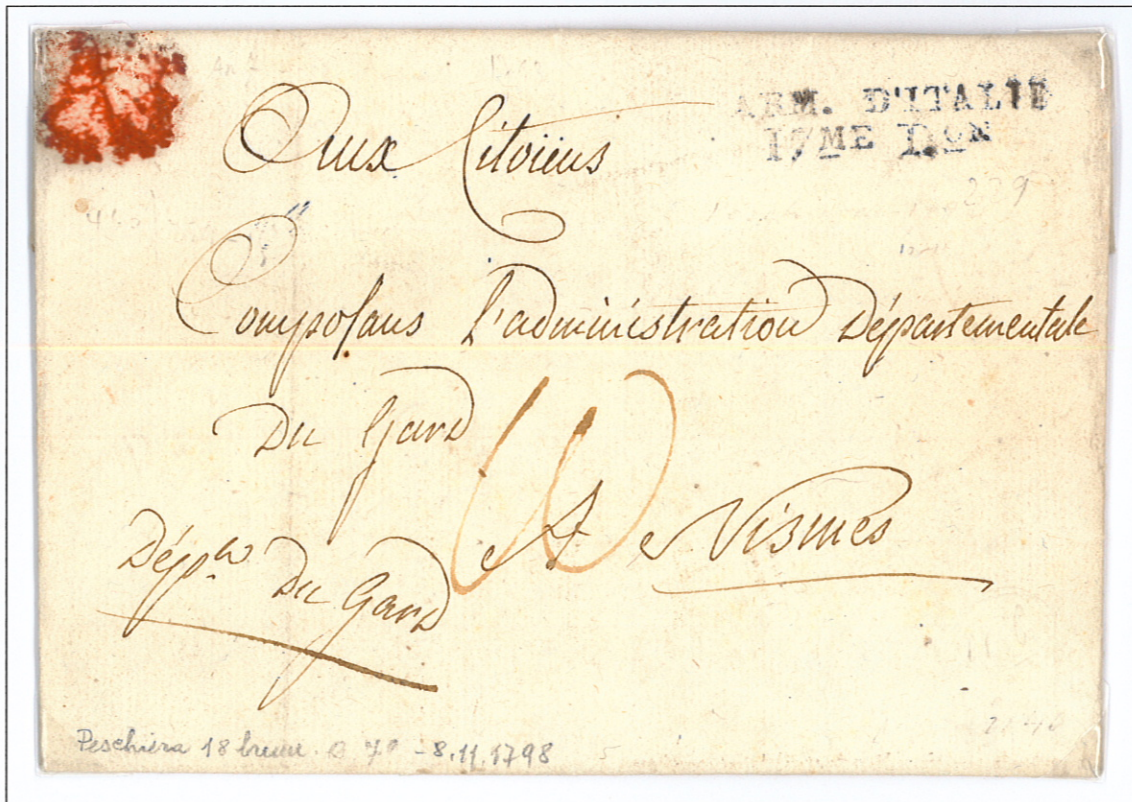 ARM. D'ITALIE
17ME D.ON
Aux Citoïens
Composans l'administration Départementale
Du Gard
A Nismes
Dép.
Du Gard
Peschiera 18 brum. 7º - 8.11.1798
239